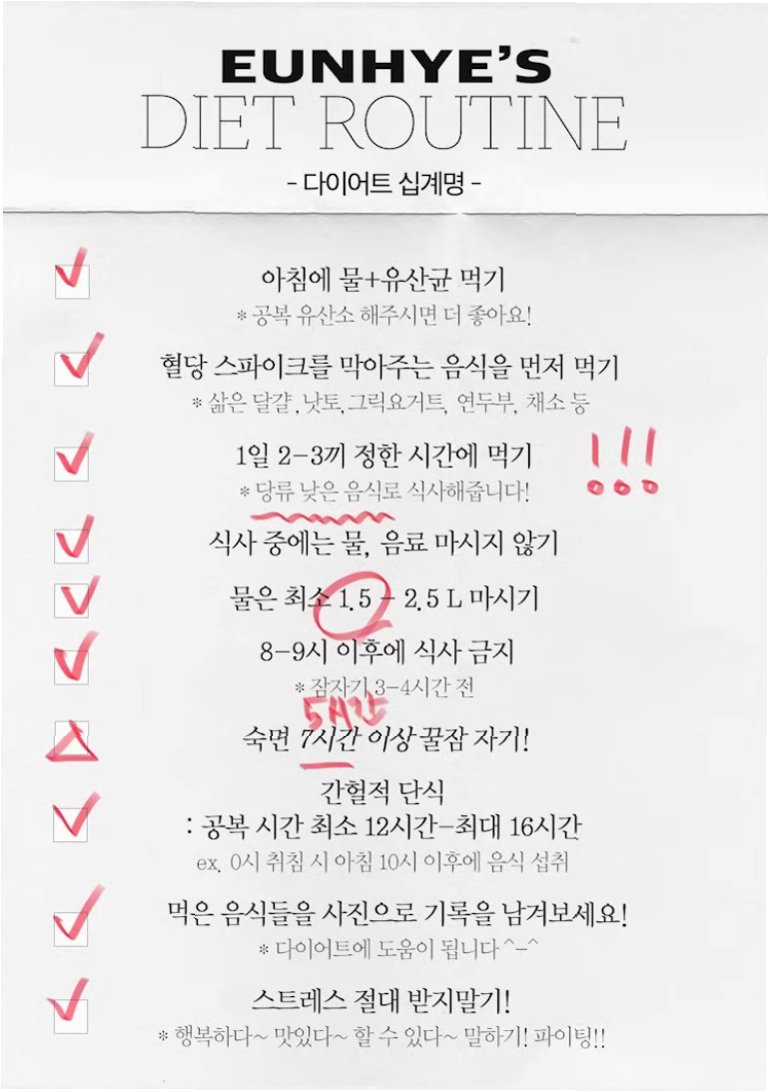 EUNHYE'S
DIET ROUTINE
- 다이어트 십계명 -
아침에 물+유산균 먹기
* 공복 유산소 해주시면 더 좋아요!
혈당 스파이크를 막아주는 음식을 먼저 먹기
* 삶은 달걀, 낫토, 그릭요거트, 연두부, 채소 등
1일 2-3끼 정한 시간에 먹기 !!!
* 당류 낮은 음식로 식사해줍니다!
식사 중에는 물, 음료 마시지 않기
물은 최소 1.5 - 2.5 L 마시기
8-9시 이후에 식사 금지
* 잠자기 3-4시간 전
5시간
숙면 7시간 이상 꿀잠 자기!
간헐적 단식
: 공복 시간 최소 12시간-최대 16시간
ex. 0시 취침 시 아침 10시 이후에 음식 섭취
먹은 음식들을 사진으로 기록을 남겨보세요!
* 다이어트에 도움이 됩니다 ^-^
스트레스 절대 받지말기!
* 행복하다~ 맛있다~ 할 수 있다~ 말하기! 파이팅!!